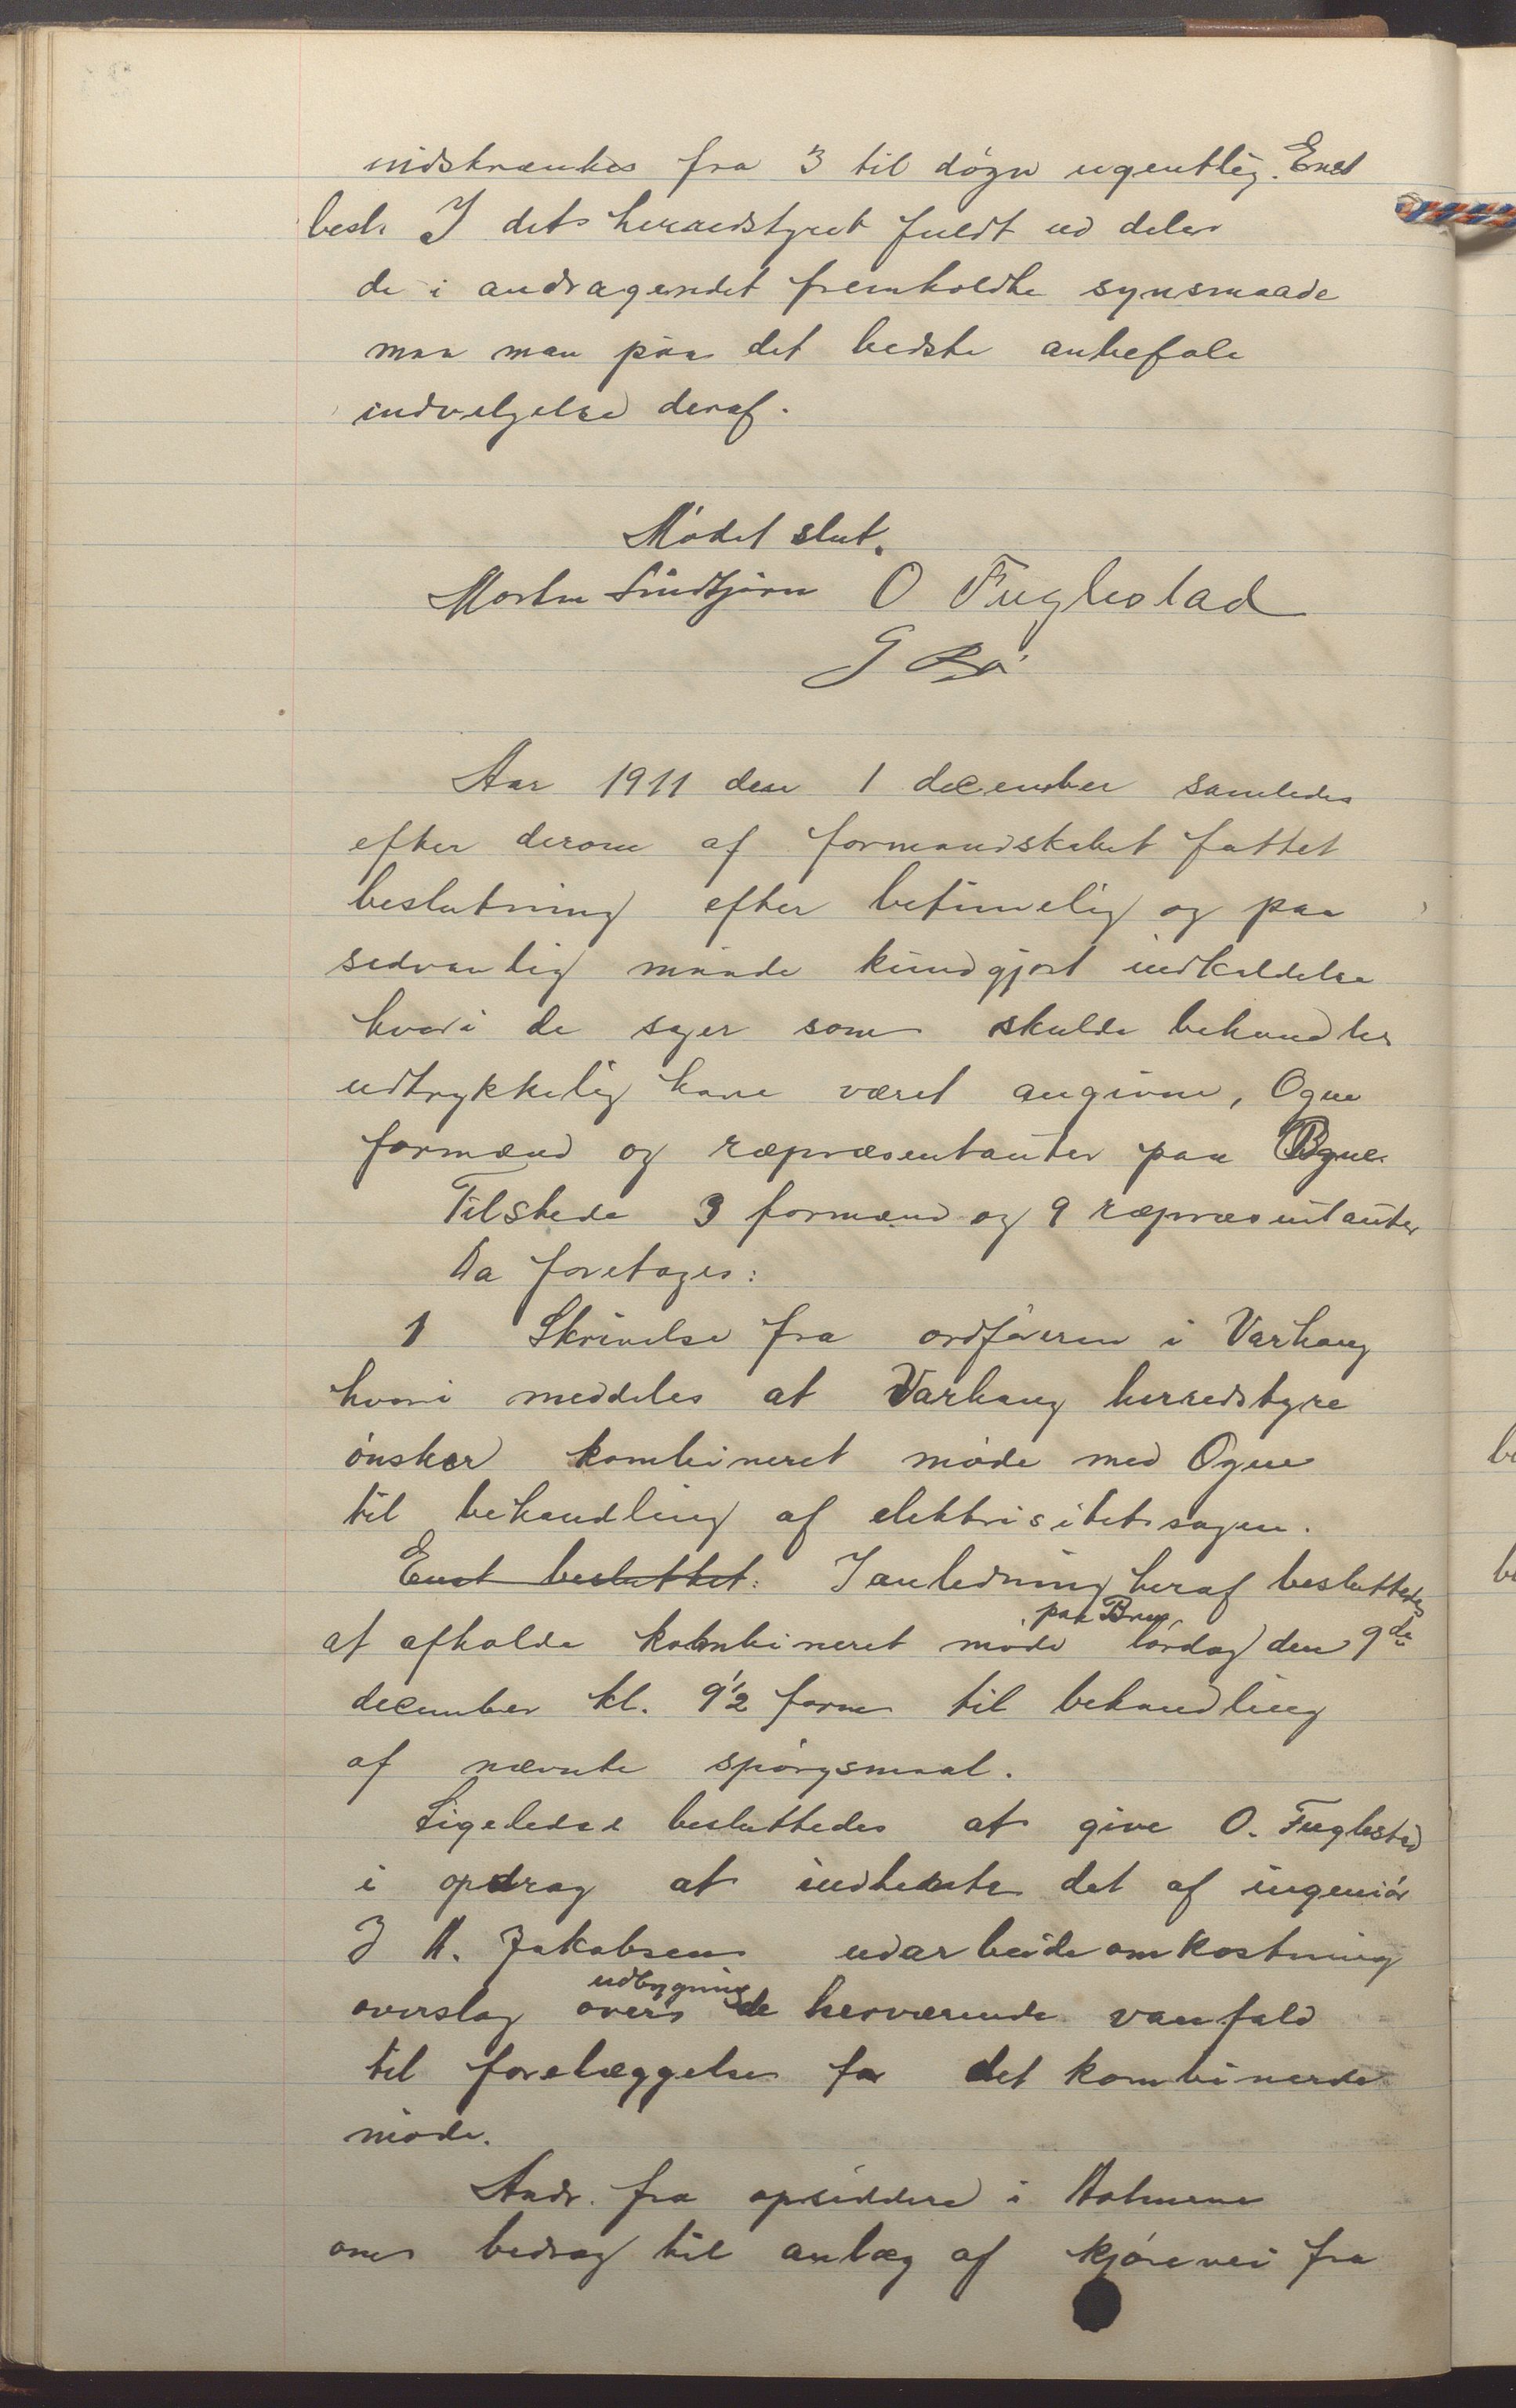 indskrænkes fra 3 til døgn ugentlig. Enst
besl. I det herredstyret fuldt ud deler
de i andragendet fremholdte synsmaade
maa man paa det bedste anbefale
indvelgelse deraf.
Mødet slut.
Morten Lindtjørn O Fuglestad
G Bø
Aar 1911 den 1 december samledes
efter derom af formandskabet fattet
beslutning efter betimelig og paa
sedvanlig maade kundgjort indkaldelse
hvori de sager som skulde behandles
udtrykkelig have været angivne, Ogne
formænd og ræpræsentanter paa Ogne.
Tilstede 3 formænd og 9 ræpræsentanter
Da foretages:
1 Skrivelse fra ordføreren i Varhaug
hvori meddeles at Varhaug herredstyre
ønsker kombineret møde med Ogne
til behandling af elektrisitetsagen.
Enst besluttet: I anledning heraf besluttedes
paa Brue
at afholde kombineret møde lørdag den 9de
december kl. 9½ form til behandling
af nævnte spørgsmaal.
Ligeledes besluttedes at give O. Fuglestad
i opdrag at indhente det af ingeniør
J A. Jakobsen udarbeide omkostning
udbygning
overslag over de herværende vanfald
til forelæggelse for det kombinerde
møde.
Andr. fra opsiddere i Holmene
om bedrag til anlæg af kjørevei fra